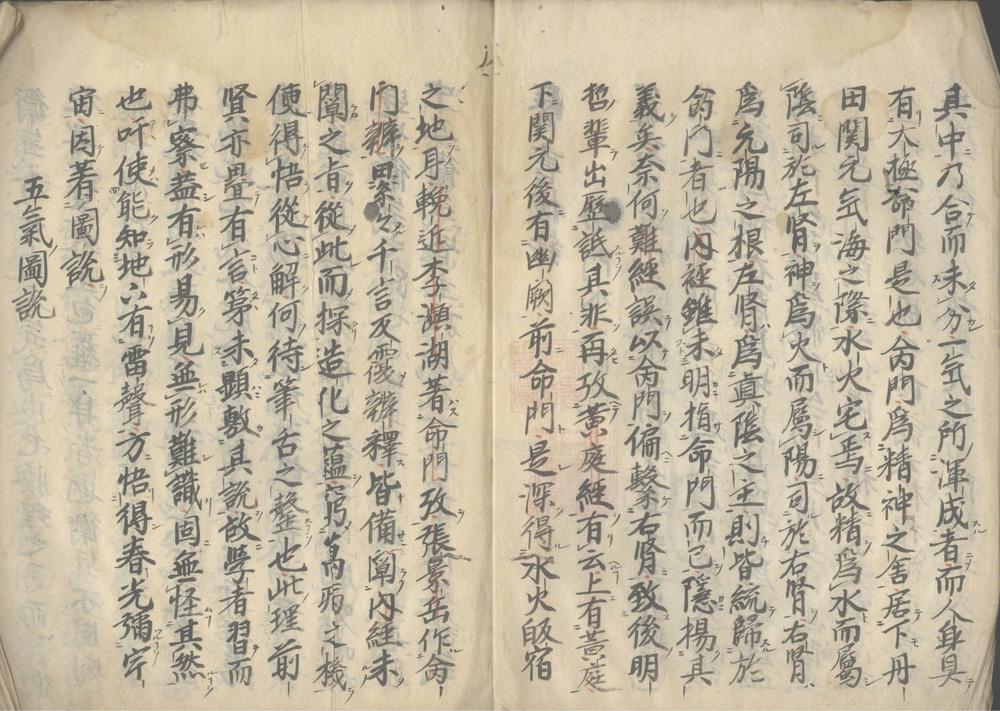 其中乃合而未分一氣之所渾成者而人身具
有大極命門是也命門爲精神之舍居下丹
田関元气海之際水火宅焉故精爲水而屬
陰司於左腎神爲火而屬陽司於右腎右腎
爲元陽之根左腎爲真陰之主則皆統歸於
命門者也内経雖未明指命門而已隠揚其
義矣奈何難經誤以命門偏繋右腎致後明
哲輩出歴詆其非再攷黄庭經有云上有黄庭
下関元後有幽闕前命門是深得水火皈宿
之地月輓近李瀕湖著命門攷張景岳作命
門辨累々千言反覆辨釋皆備闡内経未
闡之旨從此而探造化之蘊窮萬病之機
使得悟從心解何待筆古之聱也此理前
贤亦疊有言苐未顕敷其説故學者習而
弗察蓋有形易見無形難識固無怪其然
也吁使能知地六有雷聲方悟得春光彌宇
宙因著圖説
五氣圖説